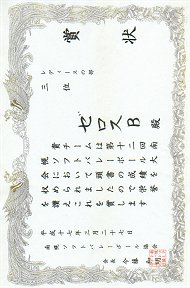 賞状
レディースの部
三位
ゼロスB殿
貴チームは第十二回南
幌ソフトバレーボール大
会において頭書の成績を
収められましたので栄誉
を讃えこれを賞します
平成十七年三月二十七日
南幌ソフトバレーボール協会
会長 今